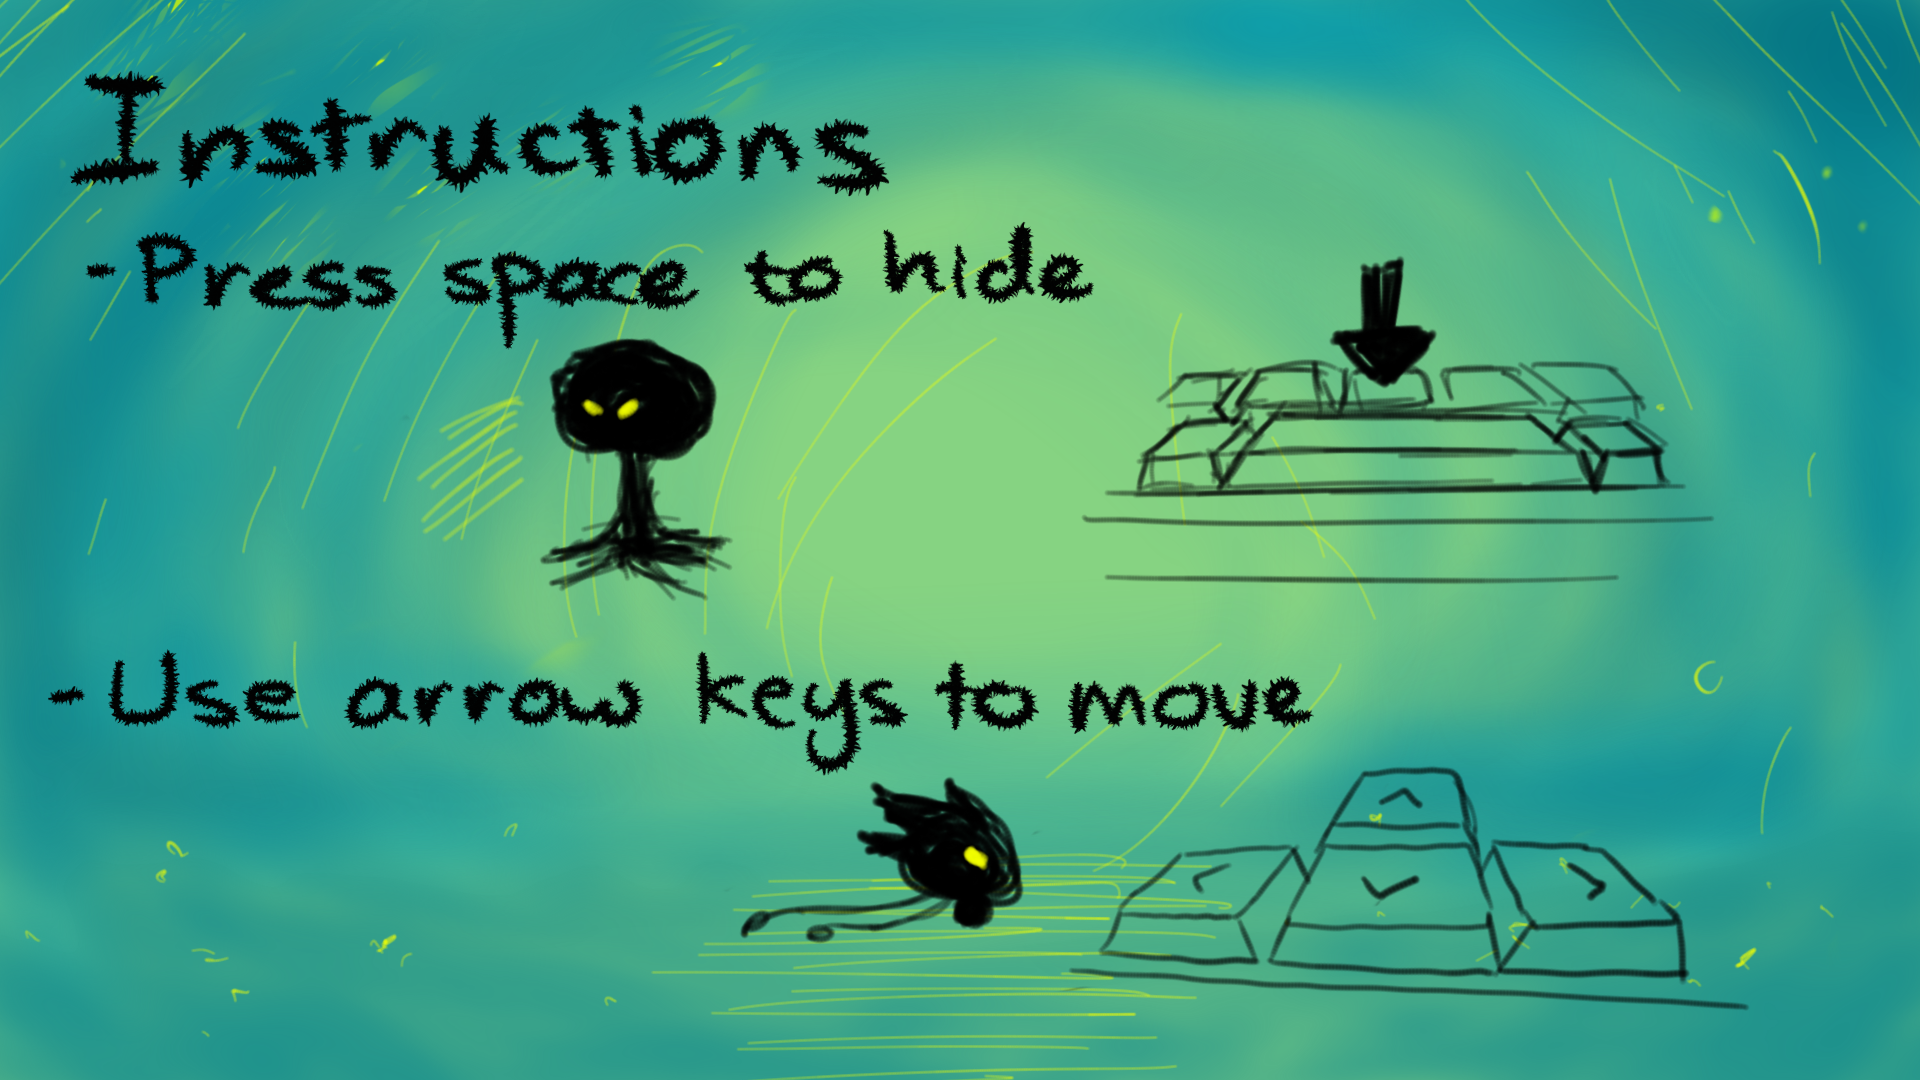 Instructions
-Press space to hide
-Use arrow keys to move